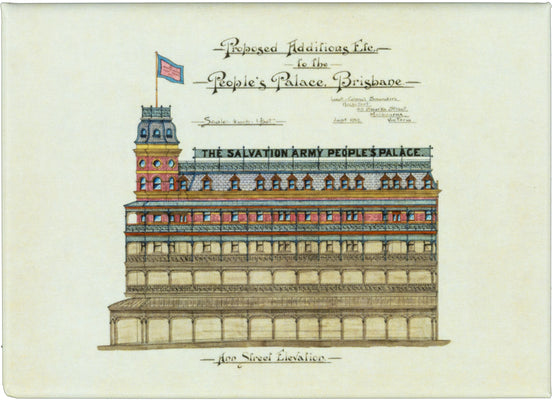 Proposed Additions Etc.
to the
People's Palace, Brisbane.
Lieut-Colonel Saunders
Architect
Melbourne
Victoria
Sept 1912
THE SALVATION ARMY PEOPLE'S PALACE.
Ann Street Elevation.